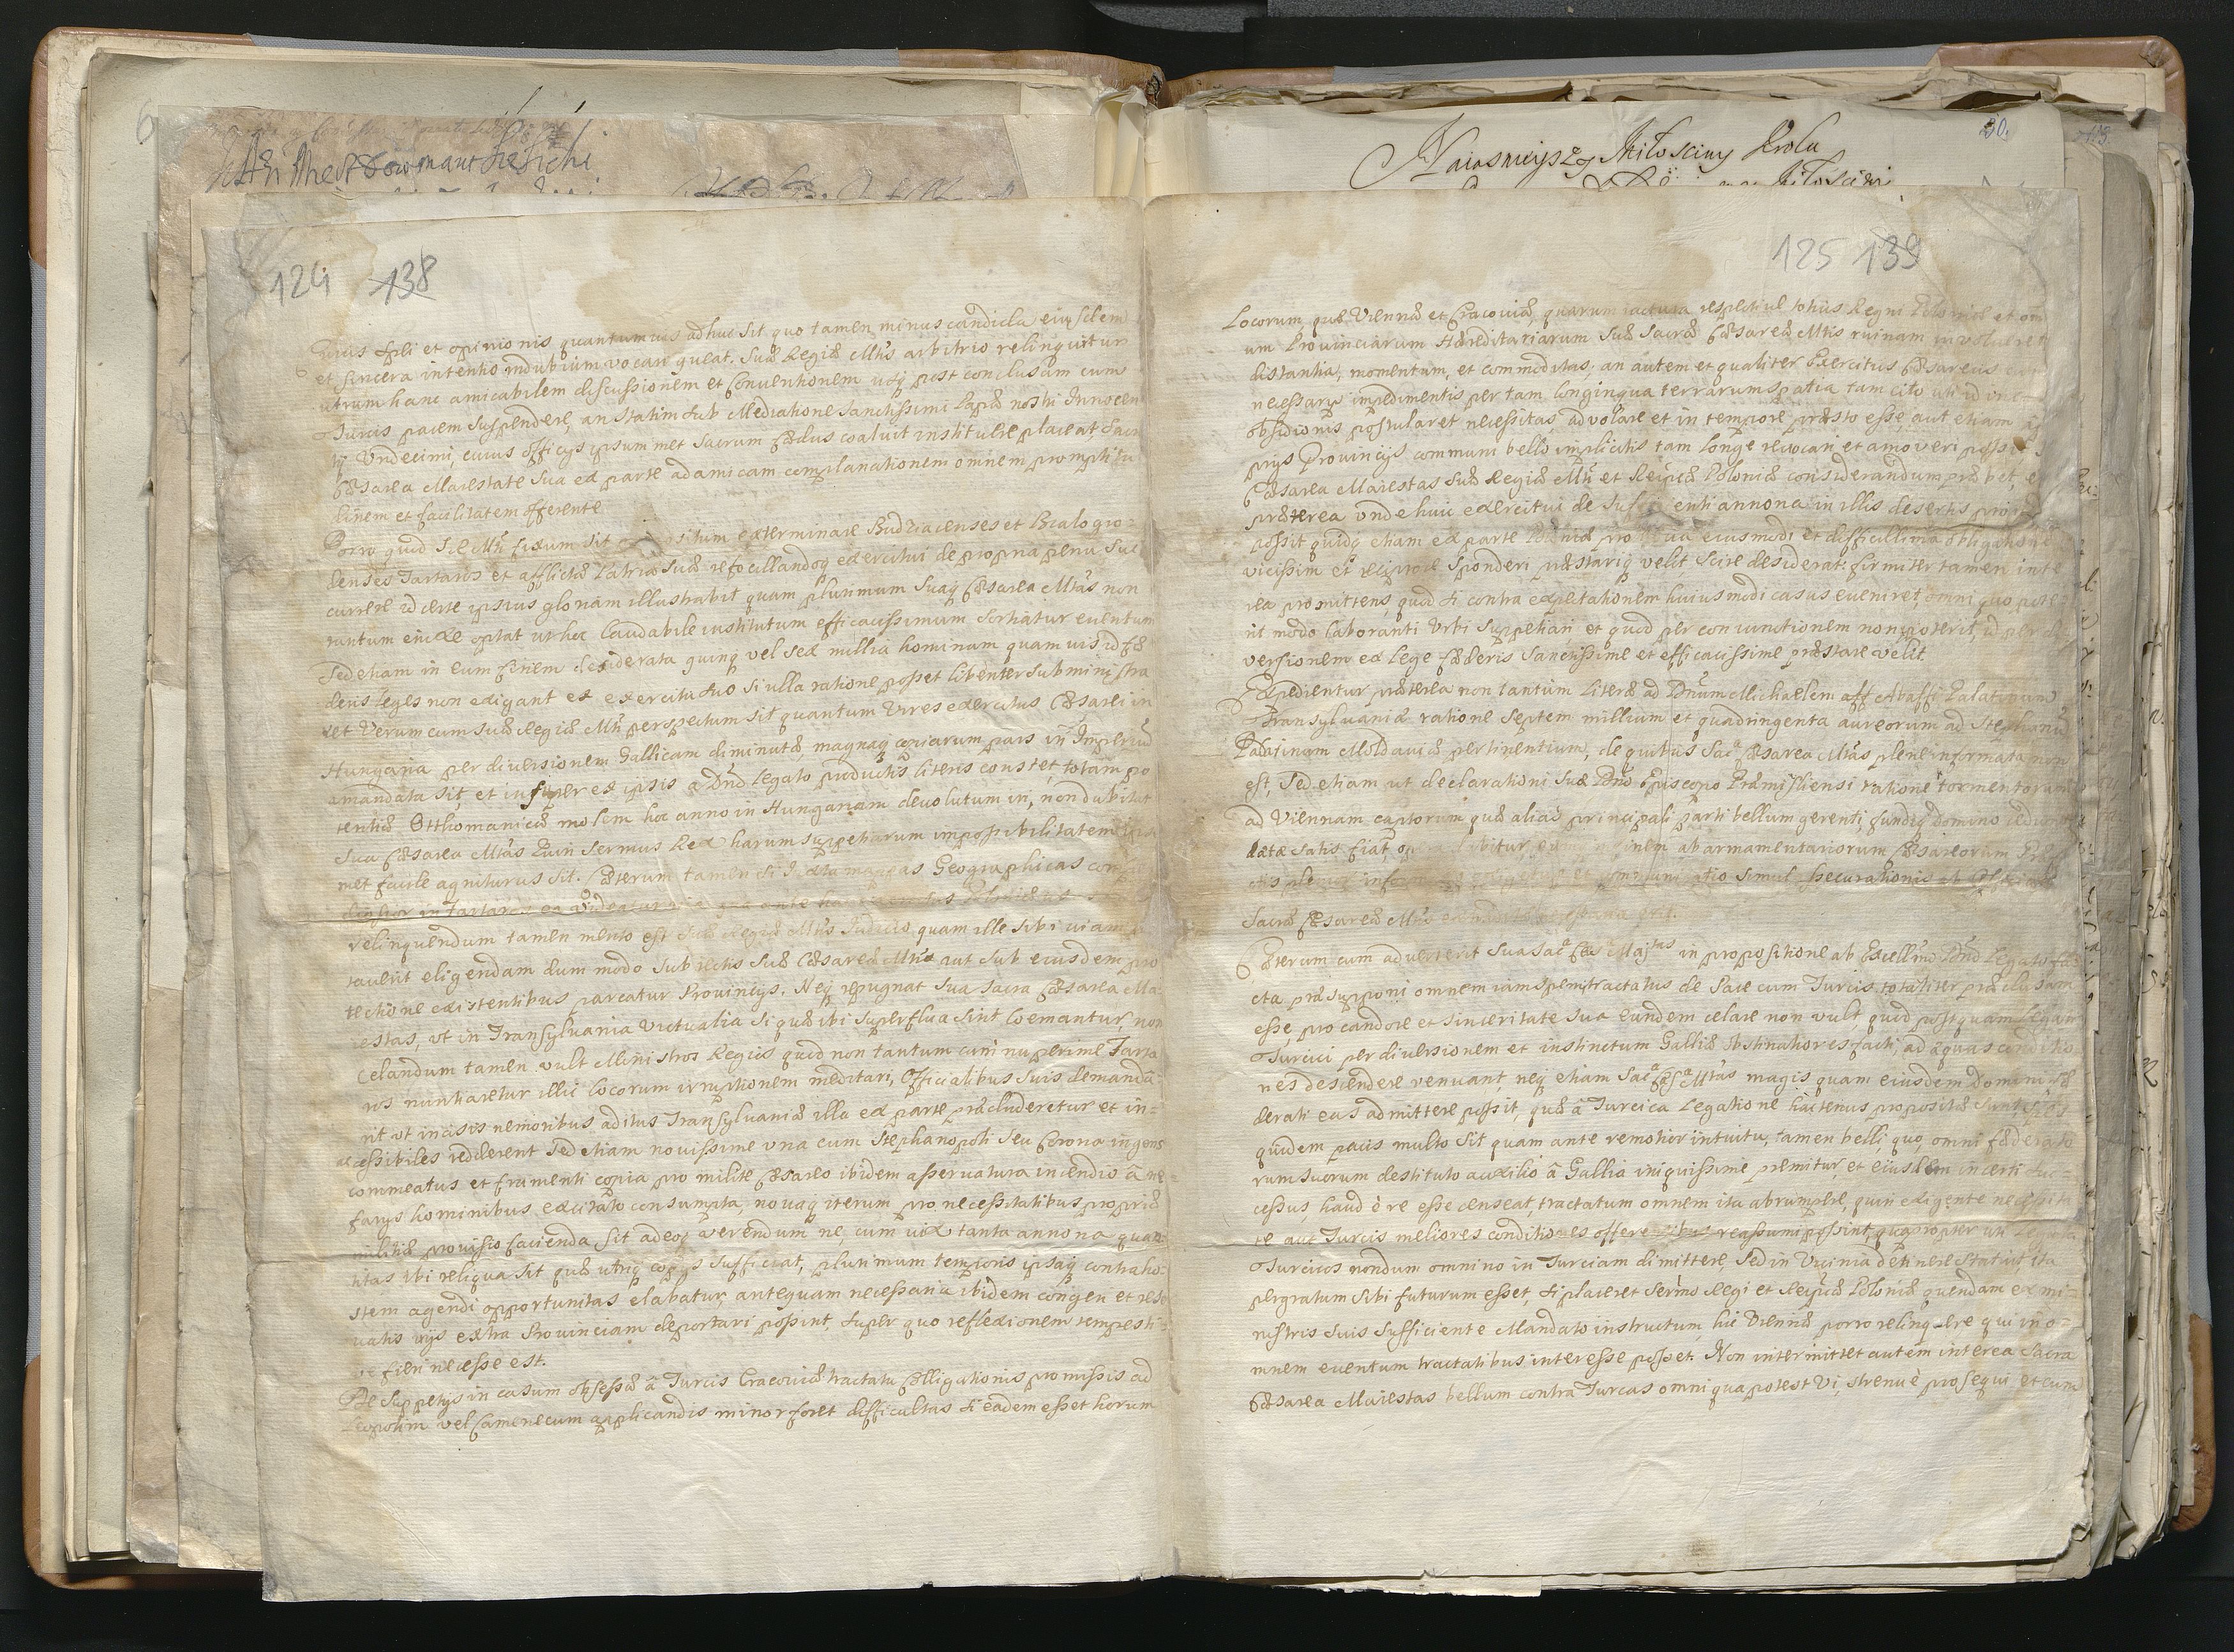 Naiasnieyszy Miłosciwy Krolu
30.
124 138
eius spei et opinionis quantumvis adhuc sit, quo tamen minus candida eiusdem
et sincera intentio in dubium vocari queat, Suæ Regiæ Mttis arbitrio relinquitur
utrum hanc amicabilem discussionem et Conventionem usq post conclusam cum
Turcis pacem suspendere, an statim sub Mediatione Sanctissimi Papæ nostri Innocen
tij Undecimi, cuius officijs ipsummet Sacrum fædus coaluit instituere placeat Sacra
Cæsarea Maiestate Sua ex parte ad amicam complanationem omnem promptitu
dinem et facilitatem offerente
Porro quod S R Mtti fixum sit propositum exterminare Budziacenses et Bialogro-
denses Tartaros et afflictæ Patriæ suæ refocillandoq exercitui de propria penu suc
currere id certe ipsius gloriam illustrabit quam plurimum Suaq Cæsarea Mttas non
tantum eidem optat ut hoc laudabile institutum efficacissimum sortiatur eventum
Sed etiam in eum finem desiderata quinq vel sex millia hominum quamvis id fæ
deris leges non exigant ex exercitu suo si ulla ratione posset libenter subministra
ret Verum cum Suæ Regiæ Mtti perspectum sit quantum Vires exercitus Cæsarei in
Hungaria per diversionem Gallicam diminutæ, magnaq copiarum pars in Imperiũ
amandata sit, et insuper ex ipsis a Dno Legato productis literis constet, totam po
tentiæ Otthomanicæ molem hoc anno in Hungariam devolutum iri, non dubitat
Sua Cæsarea Mttas Quin Sermus Rex harum suppetiarum impossibilitatem ipse
met facile agniturus sit. Cæterum tamen si Iuxta mappas Geographicas
relinquendum tamen merito est Suæ Regiæ Mttis Iudicio, quam ille sibi viam
taverit eligendam dum modo subiectis Suæ Cæsareæ Mttis aut sub eiusdem pro
tectione existentibus parcatur Provincijs. Neq repugnat Sua Sacra Cæsarea Ma-
iestas, ut in Transylvania Victualia si quæ ibi superflua sint coemantur, non
Celandum tamen vult Ministros Regios quod non tantum cum nuperrime Tarta
ros nuntiaretur illic locorum irruptionem meditari, Officialibus suis demanda-
rit ut incisis nemoribus aditus Transylvaniæ illa ex parte præcluderetur et in-
accessibiles redderent Sed etiam novissime una cum Stephanopoli seu Corona ingens
commeatus et frumenti copia pro milite Cæsareo ibidem asservatura incendio â ne-
farijs hominibus excitato consumpta, novaq iterum pro necessitatibus propriæ
militiæ provisio facienda sit adeoq verendum ne, cum vix tanta annona quan
titas ibi reliqua sit quæ utriq copijs sufficiat, plurimum temporis ipsaq contra ho-
stem agendi opportunitas elabatur, antequam necessaria ibidem congeri et reser
vatis vijs extra Provinciam deportari possint, super quo reflexionem tempesti-
ve fieri necesse est.
De Suppetijs in casum obsessæ â Turcis Cracoviæ tractatu Colligationis promissis ad
Leopolim vel Camenecum applicandis minor foret difficultas si eadem esset horum
125 139
Locorum, quæ Viennæ et Cracoviæ, quarum iactura respective totius Regni Poloniæ et om
um Provinciarum Hæreditariarum Suæ Sacræ Cæsareæ Mttis ruinam involveret
distantia, momentum, et commoditas; an autem et qualiter Exercitus Cæsareus cum
necessarijs impedimentis per tam longinqua terrarum spatia tam cito uti id
obsidionis postularet necessitas, advolare et in tempore præsto esse, aut etiam
prijs Provincijs communi bello implicitis tam longe revocari et amoveri possit
Cæsarea Maiestas Suæ Regiæ Mtti et Reipcæ Poloniæ considerandum præbet, et
præterea unde huic exercitui de sufficienti annona in illis desertis
possit quidq etiam ex parte Poloniæ pro eiusmodi et difficillima obligatione
vicissim et reciproce sponderi præstariq velit scire desiderat: firmiter tamen inte
rea promittens, quod si contra expectationem huiusmodi casus eveniret, omni quo pote
rit modo laboranti Urbi suppetiari et quod per coniunctionem non poterit, id per di
versionem ex lege fæderis Sanctissime et efficacissime præstare velit.
Expedientur præterea non tantum Literæ ad Dnum Michaelem Abaffi Palatinum
Transylvaniæ ratione Septem millium et quadringenta aureorum ad Stephanũ
Palatinum Moldaviæ pertinentium, de quibus Saca Cæsarea Mttas plene informata non
est, Sed etiam ut declarationi suæ Dno Episcopo Præmisliensi ratione tormentorum
ad Viennam captorum quæ alias principali parti bellum gerenti, fundiq domino
datæ satis fiat,
Sacræ Cæsareæ Mttis
Cæterum cum adverterit Sua Saca Cæsa Majtas in propositione ab Excellmo Dno Legato fa-
cta præsupponi omnem iam spem tractatus de Pace cum Turcis totaliter præclusam
esse, pro candore et sinceritate sua Eundem celare non vult quod postquam Legati
Turcici per diversionem et instinctum Galliæ obstinatiores facti, ad æquas conditio
nes descendere renuant, neq etiam Saca Cæsa Mttas magis quam eiusdem Domini fæ
derati eas admittere possit, quæ â Turcica Legatione hactenus propositæ sunt, spes
quidem pacis multo sit quam ante remotior intuitu, tamen belli, quo, omni fæderato
rum suorum destituto auxilio â Gallia iniquissime premitur, et eiusdem incerti suc-
cessus, haud è re esse censeat, tractatum omnem ita abrumpere, quin exigente necessita
te aut Turcis meliores conditiones offerentibus reassumi possint, quapropter uti
Turcicos nondum omnino in Turciam dimittere, sed in Vicinia detinere statuit ita
pergratum sibi futurum esset, si placeret Sermo Regi et Reipcæ Poloniæ quendam ex mi-
nistris suis sufficiente Mandato instructum hic Viennæ porro relinquere qui in o-
mnem eventum tractatibus interesse posset. Non intermittet autem interea Sacra
Cæsarea Maiestas bellum contra Turcas omni qua potest Vi, strenue prosequi et cum